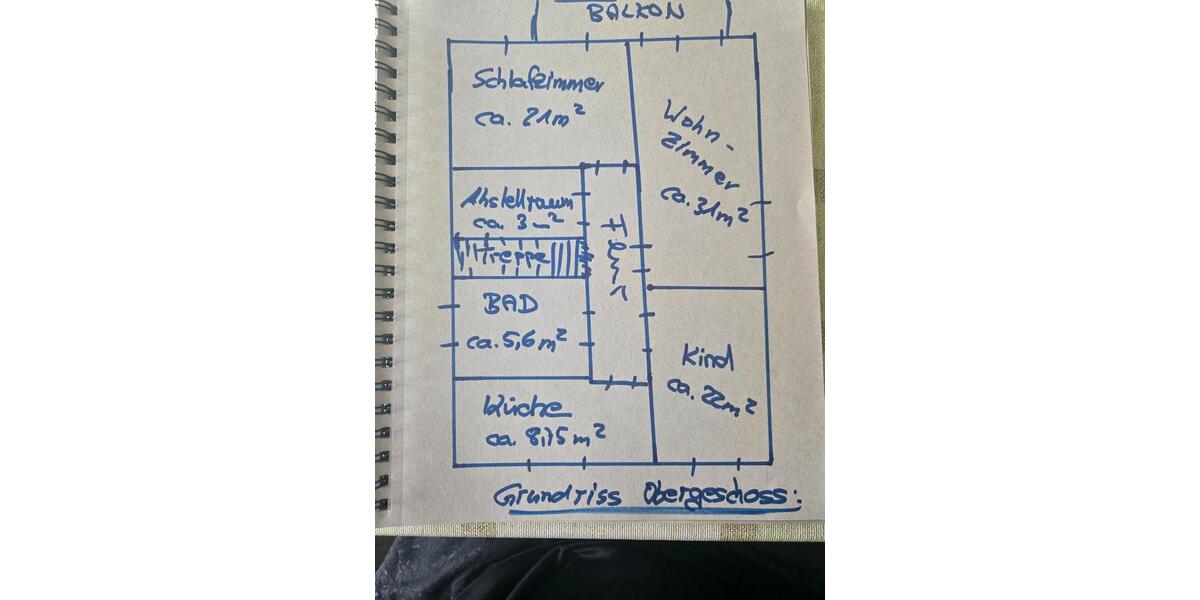 BALKON
Schlafzimmer
ca. 21m²
Wohn-
zimmer
ca. 31m²
Abstellraum
ca. 3m²
Treppe
Flur
BAD
ca. 5,6m²
Kind
ca. 22m²
Küche
ca. 8,75m²
Grundriss Obergeschoss: